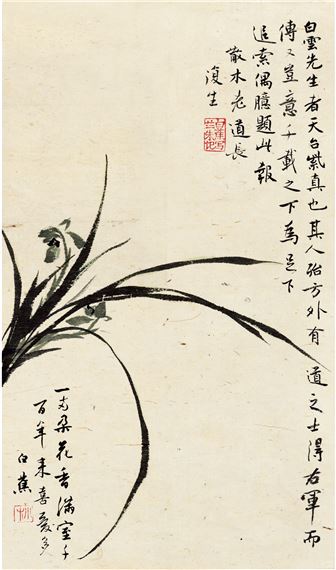 白雲先生者天台紫真也其人殆方外有道之士得右軍而
傳又豈意千載之下為足下
追索偶臆題此報
散木老道長
復生
一朵花香滿室千
百年来喜爱多
白蕉